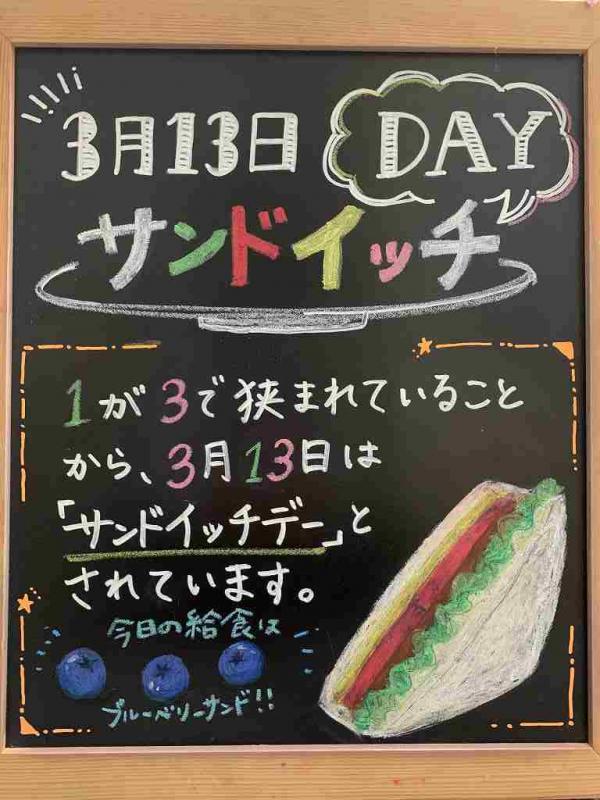 3月13日 DAY
サンドイッチ
1が3で狭まれていること
から、3月13日は
「サンドイッチデー」と
されています。
今日の給食は
ブルーベリーサンド!!